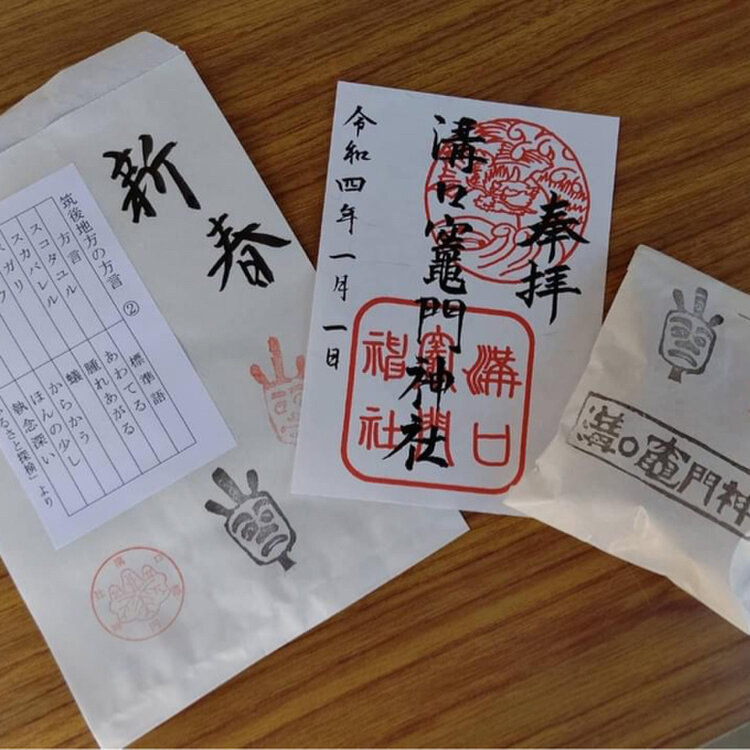 新春
筑後地方の方言 ②
方言 標準語
スコタユル あわてる
スカバレル 腫れあがる
スガリ 蟻
からかう
ほんの少し
執念深い
るさと探検」より
奉拝
溝口竈門神社
令和四年一月一日
溝口
竈門
神社
溝口竈門神